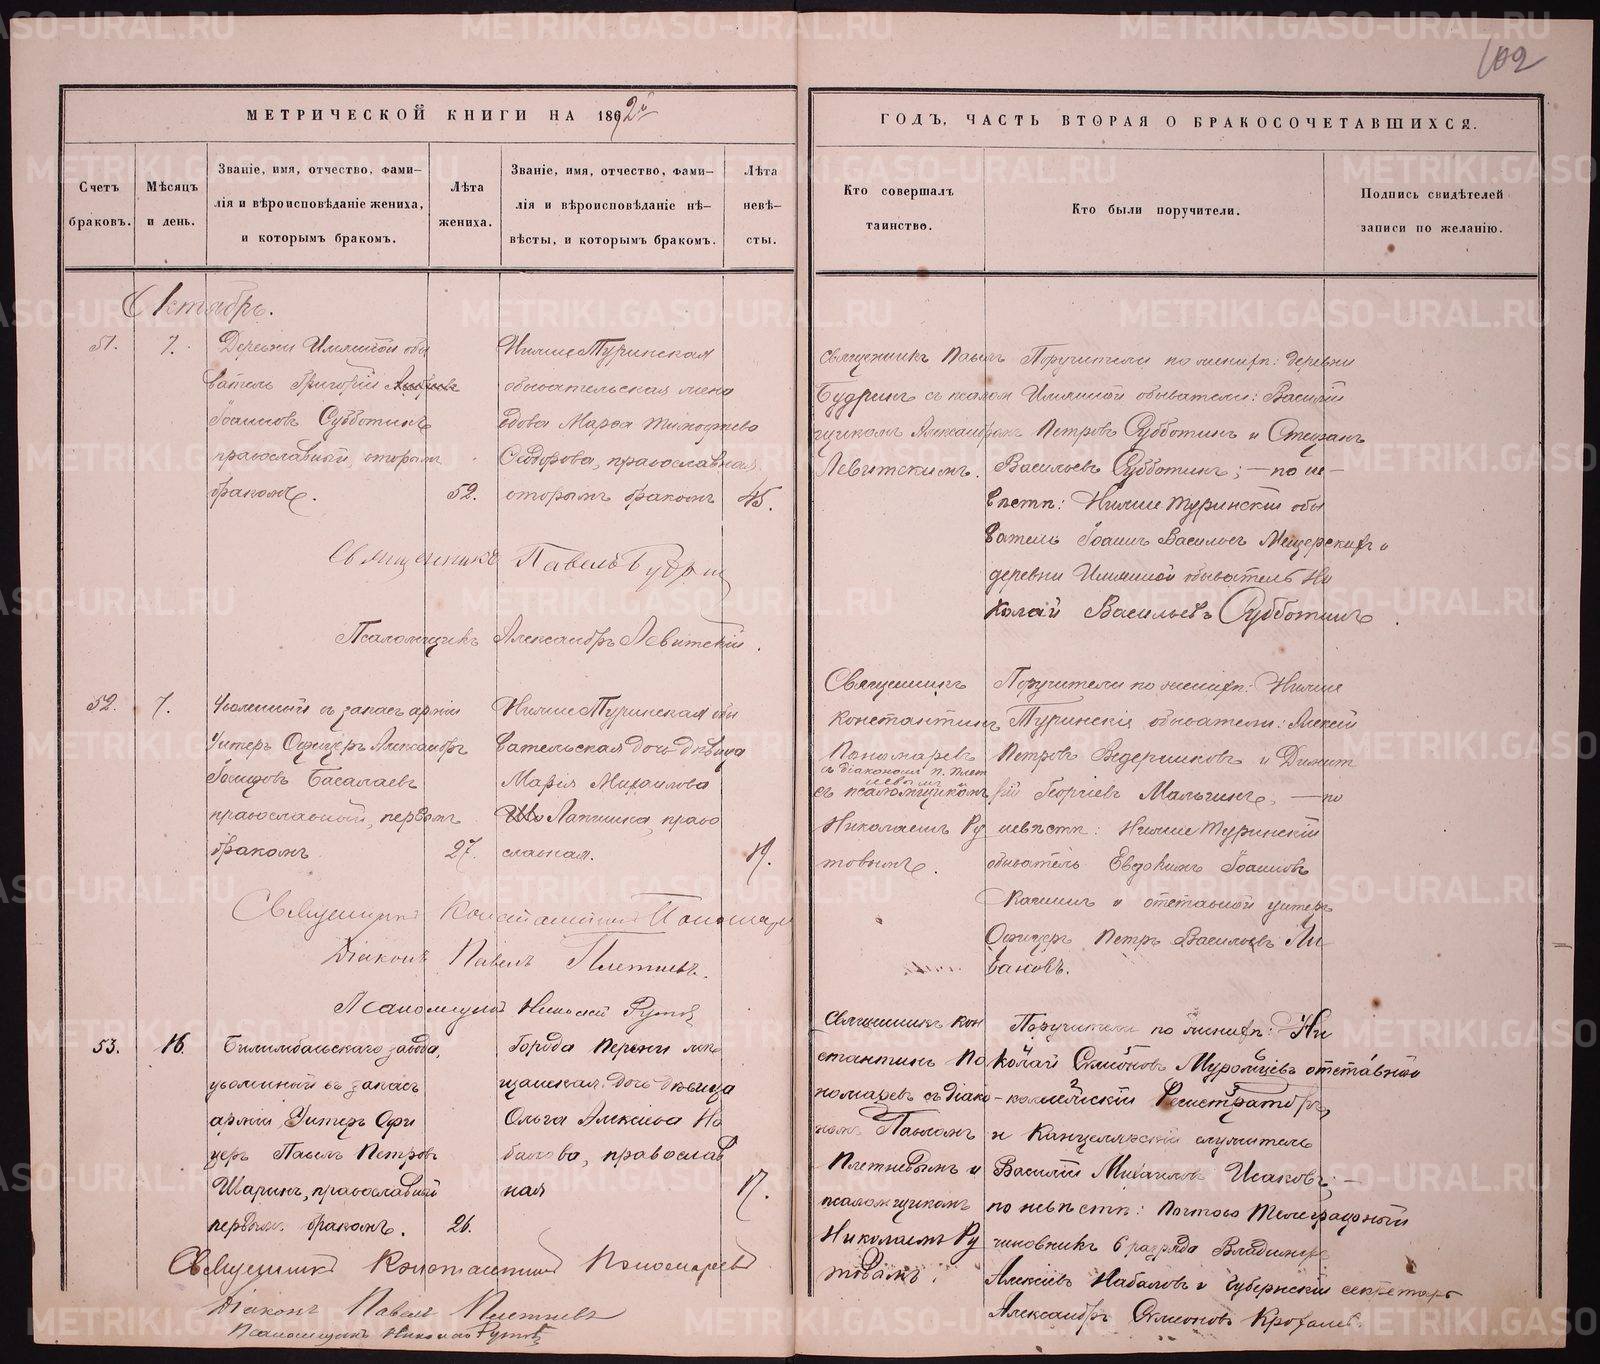 102
МЕТРИЧЕСКОЙ КНИГИ НА 1892й
ГОДЪ, ЧАСТЬ ВТОРАЯ О БРАКОСОЧЕТАВШИХСЯ.
Счетъ браковъ.
Мѣсяцъ и день.
Званіе, имя, отчество, фами-
лія и вѣроисповѣданіе жениха,
и которымъ бракомъ.
Лѣта жениха.
Званіе, имя, отчество, фами-
лія и вѣроисповѣданіе не-
вѣсты, и которымъ бракомъ.
Лѣта невѣ-
сты.
Кто совершалъ
таинство.
Кто были поручители.
Подпись свидѣтелей
записи по желанію.
Октябрь.
51.
7.
Деревни обы
ватель Григорій
Іоанновъ Субботинъ
православный, вторымъ
бракомъ.
52.
Нижне Туринская
обывательская жена
вдова Марѳа Тимофеева
Сидорова, православная,
вторымъ бракомъ
45.
Священникъ Павелъ
Будринъ с псалом
щикомъ Александромъ
Левитскимъ.
Поручители по женихѣ: деревни
обыватели: Василій
Петровъ Субботинъ и Стефанъ
Васильевъ Субботинъ; — по не-
вѣстѣ: Нижне Туринскій обы
ватель Іоаннъ Васильевъ и
деревни обыватель Ни
колай Васильевъ Субботинъ
Священникъ Павелъ Будрин
Псаломщикъ Александръ Левитскій.
52.
7.
Уволенный въ запасъ арміи
Унтеръ Офицеръ Александръ
Басалаевъ
православный, первымъ
бракомъ
27.
Нижне Туринская обы
вательская дочь дѣвица
Марія Михаилова
Лапшина, право
славная.
19.
Священникъ
Константинъ
Пономаревъ
съ діакономъ П. Плет
невымъ
съ псаломщикомъ
Николаемъ Ру
товымъ.
Поручители по женихѣ: Нижне
Туринскіе обыватели: Алексій
Петровъ Ведерниковъ и Димит
рій Георгіевъ Мальгинъ, — по
невѣстѣ: Нижне Туринскій
обыватель Евдокимъ Іоанновъ
и отставной унтеръ
Офицеръ Петръ Васильевъ Ли-
вановъ.
Священникъ Константинъ Пономарев
Діаконъ Павелъ Плетневъ.
Псаломщикъ Николай Рутовъ
53.
16.
Билимбаевскаго завода,
уволенный въ запасъ
арміи Унтеръ Офи
церъ Павелъ Петровъ
Шаринъ, православный
первымъ бракомъ.
26.
Города Перми мѣ
щанская дочь дѣвица
Ольга Алексіева На
балова, православ
ная
17.
Священникъ Кон
стантинъ По
номаревъ съ діако-
номъ Павломъ
Плетневымъ и
псаломщикомъ
Николаемъ Ру
товымъ.
Поручители по женихѣ: Ни
колай Симеоновъ Муромцевъ отставной
коллежскій Регистраторъ,
и Канцелярскій служитель
Василій Михаиловъ Исаковъ; —
по невѣстѣ: Почтово Телеграфный
чиновникъ 6 разряда Владиміръ
Алексіевъ Набаловъ и Губернскій секретарь
Александръ Симеоновъ
Священникъ Константинъ Пономаревъ
Діаконъ Павелъ Плетневъ
Псаломщикъ Николай Рутовъ
METRIKI.GASO-URAL.RU